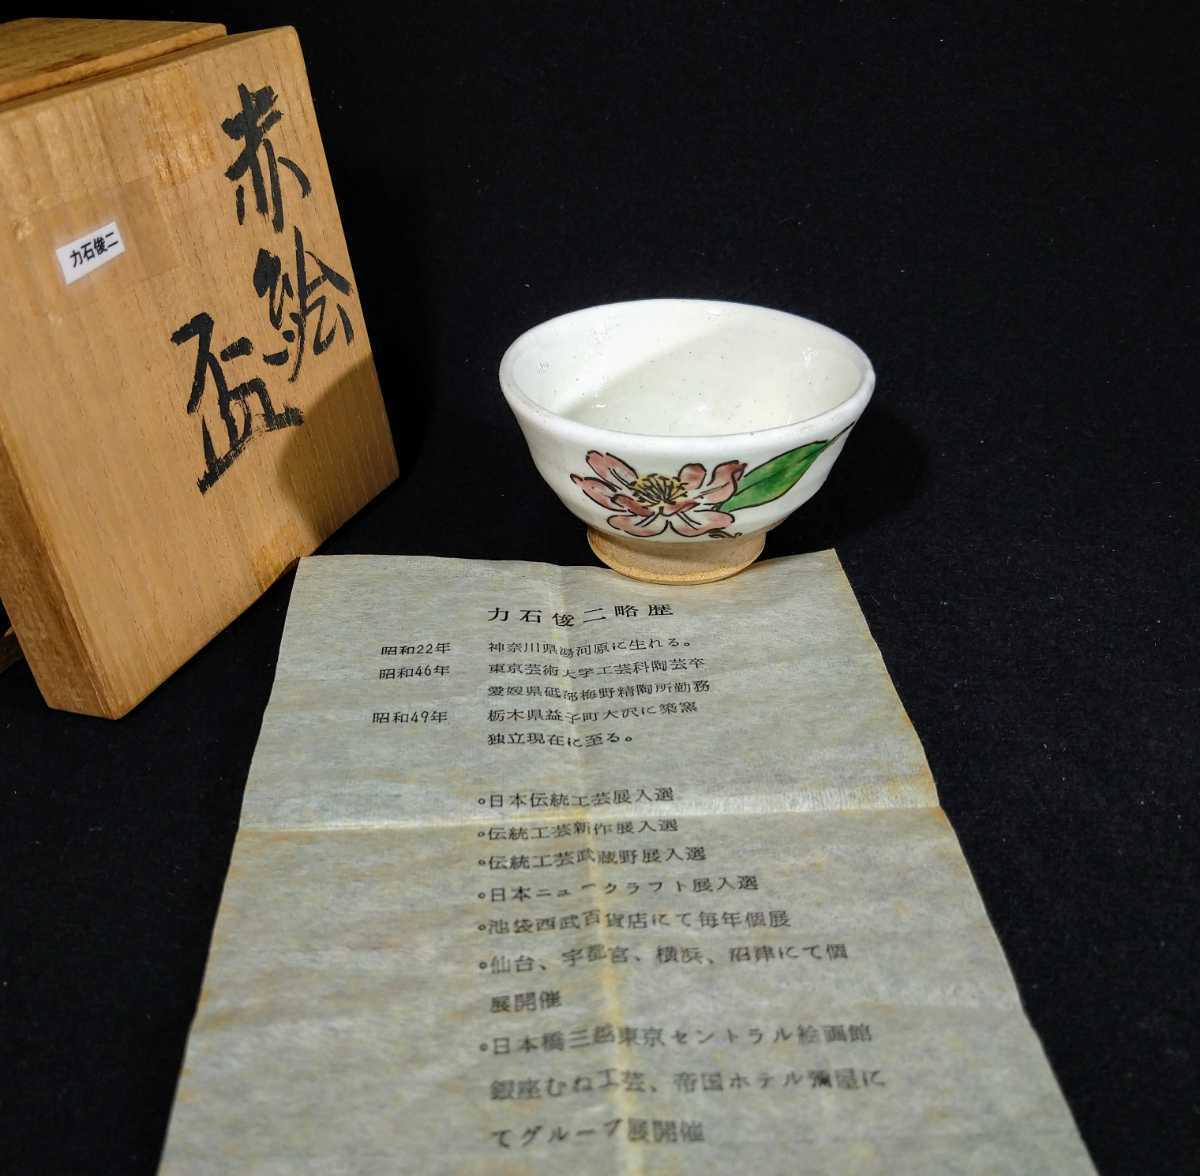 赤絵
盃
力石俊二
力石俊二略歴
昭和22年 神奈川県湯河原に生れる。
昭和46年 東京芸術大学工芸科陶芸卒
愛媛県砥部梅野精陶所勤務
昭和49年 栃木県益子町大沢に築窯
独立現在に至る。
◦日本伝統工芸展入選
◦伝統工芸新作展入選
◦伝統工芸武蔵野展入選
◦日本ニュークラフト展入選
◦池袋西武百貨店にて毎年個展
◦仙台、宇都宮、横浜、沼津にて個
展開催
◦日本橋三越東京セントラル絵画館
銀座むね工芸、帝国ホテル彌屋に
てグループ展開催